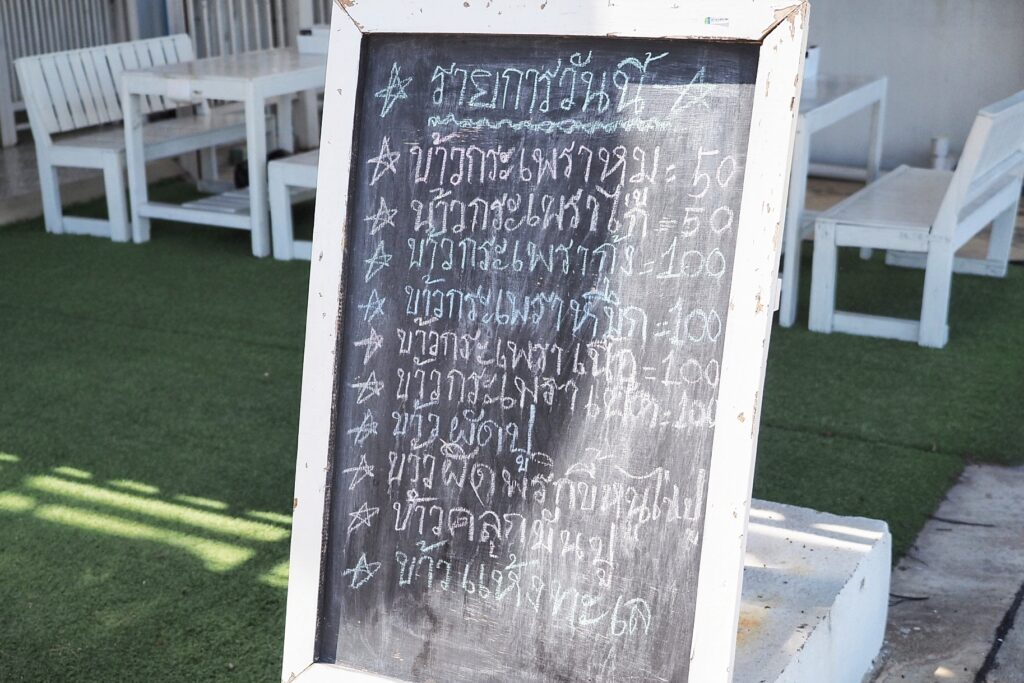 ☆ รายการวันนี้ ☆
☆ ข้าวกระเพราหมู = 50
☆ ข้าวกระเพราไก่ = 50
☆ ข้าวกระเพรากุ้ง = 100
☆ ข้าวกระเพราหมึก = 100
☆ ข้าวกระเพราเนื้อ = 100
☆ ข้าวกระเพรา = 100
☆ ข้าวผัดปู
☆ ข้าวผัดพริกขี้หนู
☆ ข้าวคลุกมันปู
☆ ข้าวแห้งทะเล